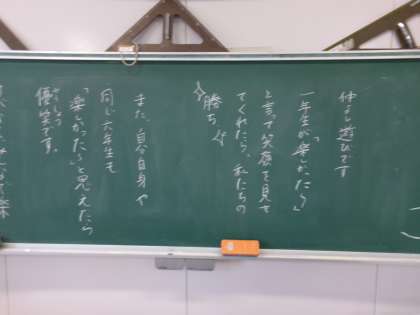 仲よし遊びです
一年生が「楽しかった」
と言って笑顔を見せ
てくれたら、私たちの
勝ち
また、自分自身や
同じ六年生も
「楽しかった」と思えたら
優勝です。